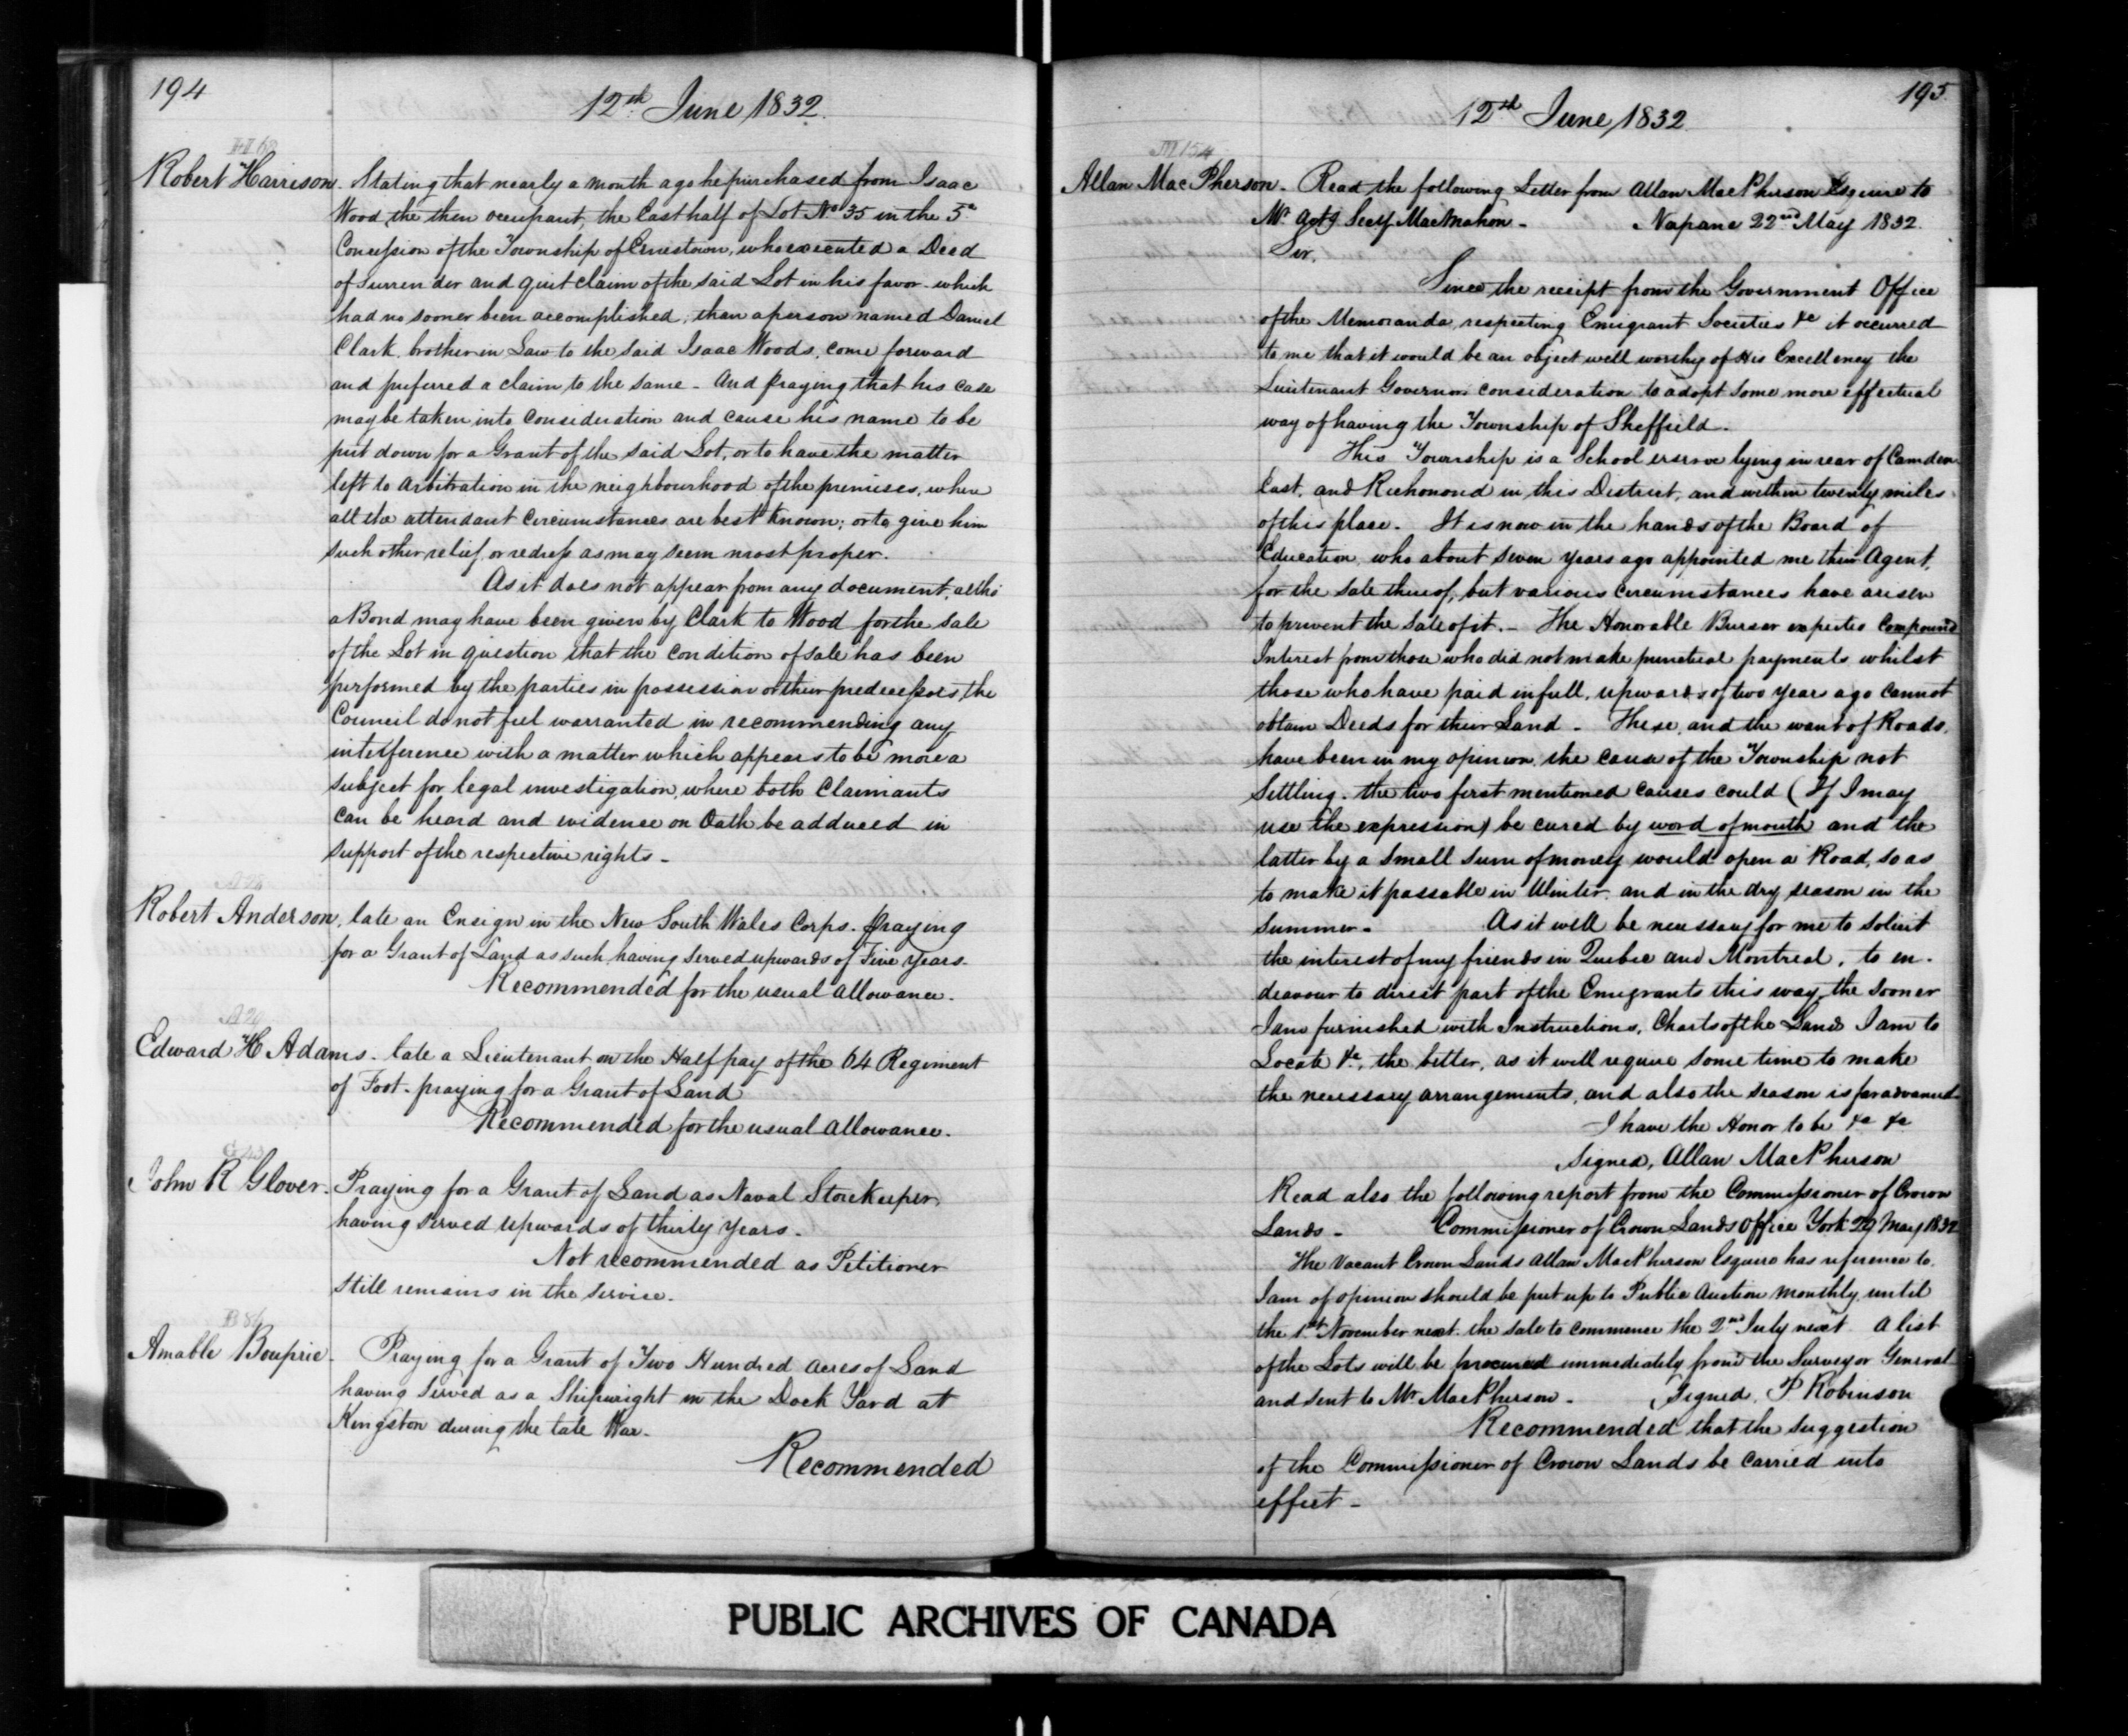 194
12th June 1832.
H 62
Robert Harrison. Stating that nearly a month ago he purchased from Isaac
Wood, the then occupant, the East half of Lot No 35 in the 5th
Concession of the Township of Ernestown, who executed a Deed
of surrender and quit claim of the said Lot in his favor - which
had no sooner been accomplished, than a person named Daniel
Clark, brother in Law to the said Isaac Woods, come forward
and preferred a claim to the same - And praying that his case
may be taken into consideration and cause his name to be
put down for a Grant of the said Lot, or to have the matter
left to Arbitration in the neighbourhood of the premises, where
all the attendant circumstances are best known; or to give him
such other relief, or redress as may seem most proper.
As it does not appear from any document, altho'
a Bond may have been given by Clark to Wood for the sale
of the Lot in question that the condition of sale has been
performed by the parties in possession or their predecessors, the
Council do not feel warranted in recommending any
interference with a matter which appears to be more a
subject for legal investigation, where both Claimants
can be heard and evidence on Oath be adduced in
support of the respective rights -
A 28
Robert Anderson, late an Ensign in the New South Wales Corps. praying
for a Grant of Land as such having served upwards of Five years -
Recommended for the usual allowance.
A 29
Edward H Adams - late a Lieutenant on the Half pay of the 64 Regiment
of Foot - praying for a Grant of Land
Recommended for the usual allowance.
G 43
John R Glover. Praying for a Grant of Land as Naval Storekeeper,
having served upwards of thirty years -
Not recommended as Petitioner
still remains in the service.
B 86
Amable Bouprie. Praying for a Grant of Two Hundred acres of Land
having served as a Shipwright in the Dock Yard at
Kingston during the late War.
Recommended
195
12th June 1832
M 154
Allan MacPherson - Read the following Letter from Allan MacPherson Esquire to
Mr Actg Secy MacMahon - Napane 22nd May 1832.
Sir,
Since the receipt from the Government Office
of the Memoranda, respecting Emigrant Societies &c it occurred
to me that it would be an object well worthy of His Excellency the
Lieutenant Governors consideration to adopt some more effectual
way of having the Township of Sheffield.
This Township is a School reserve lying in rear of Camden
East, and Richmond in this District, and within twenty miles
of this place. It is now in the hands of the Board of
Education, who about seven years ago appointed me their Agent,
for the sale thereof, but various circumstances have arisen
to prevent the sale of it. - The Honorable Burser expected Compound
Interest from those who did not make punctual payments whilst
those who have paid in full, upwards of two years ago cannot
obtain Deeds for their Land - These, and the want of Roads,
have been in my opinion, the cause of the Township not
Settling. the two first mentioned causes could (If I may
use the expression) be cured by word of mouth and the
latter by a small sum of money would open a Road, so as
to make it passable in Winter and in the dry season in the
summer - As it will be necessary for me to solicit
the interest of my friends in Quebec and Montreal, to en-
deavour to direct part of the Emigrants this way, the sooner
I am furnished with Instructions, Charts of the Lands I am to
Locate &c, the better, as it will require some time to make
the necessary arrangements, and also the season is far advanced
I have the Honor to be &c &c
Signed, Allan MacPherson
Read also the following report from the Commissioner of Crown
Lands - Commissioner of Crown Lands Office York 29 May 1832
The Vacant Crown Lands Allan MacPherson Esquire has reference to,
I am of opinion should be put up to Public Auction monthly, until
the 1st November next. the sale to commence the 2nd July next A list
of the Lots will be procured immediately from the Surveyor General
and sent to Mr MacPherson - Signed, P Robinson
Recommended that the suggestion
of the Commissioner of Crown Lands be carried into
effect -
PUBLIC ARCHIVES OF CANADA